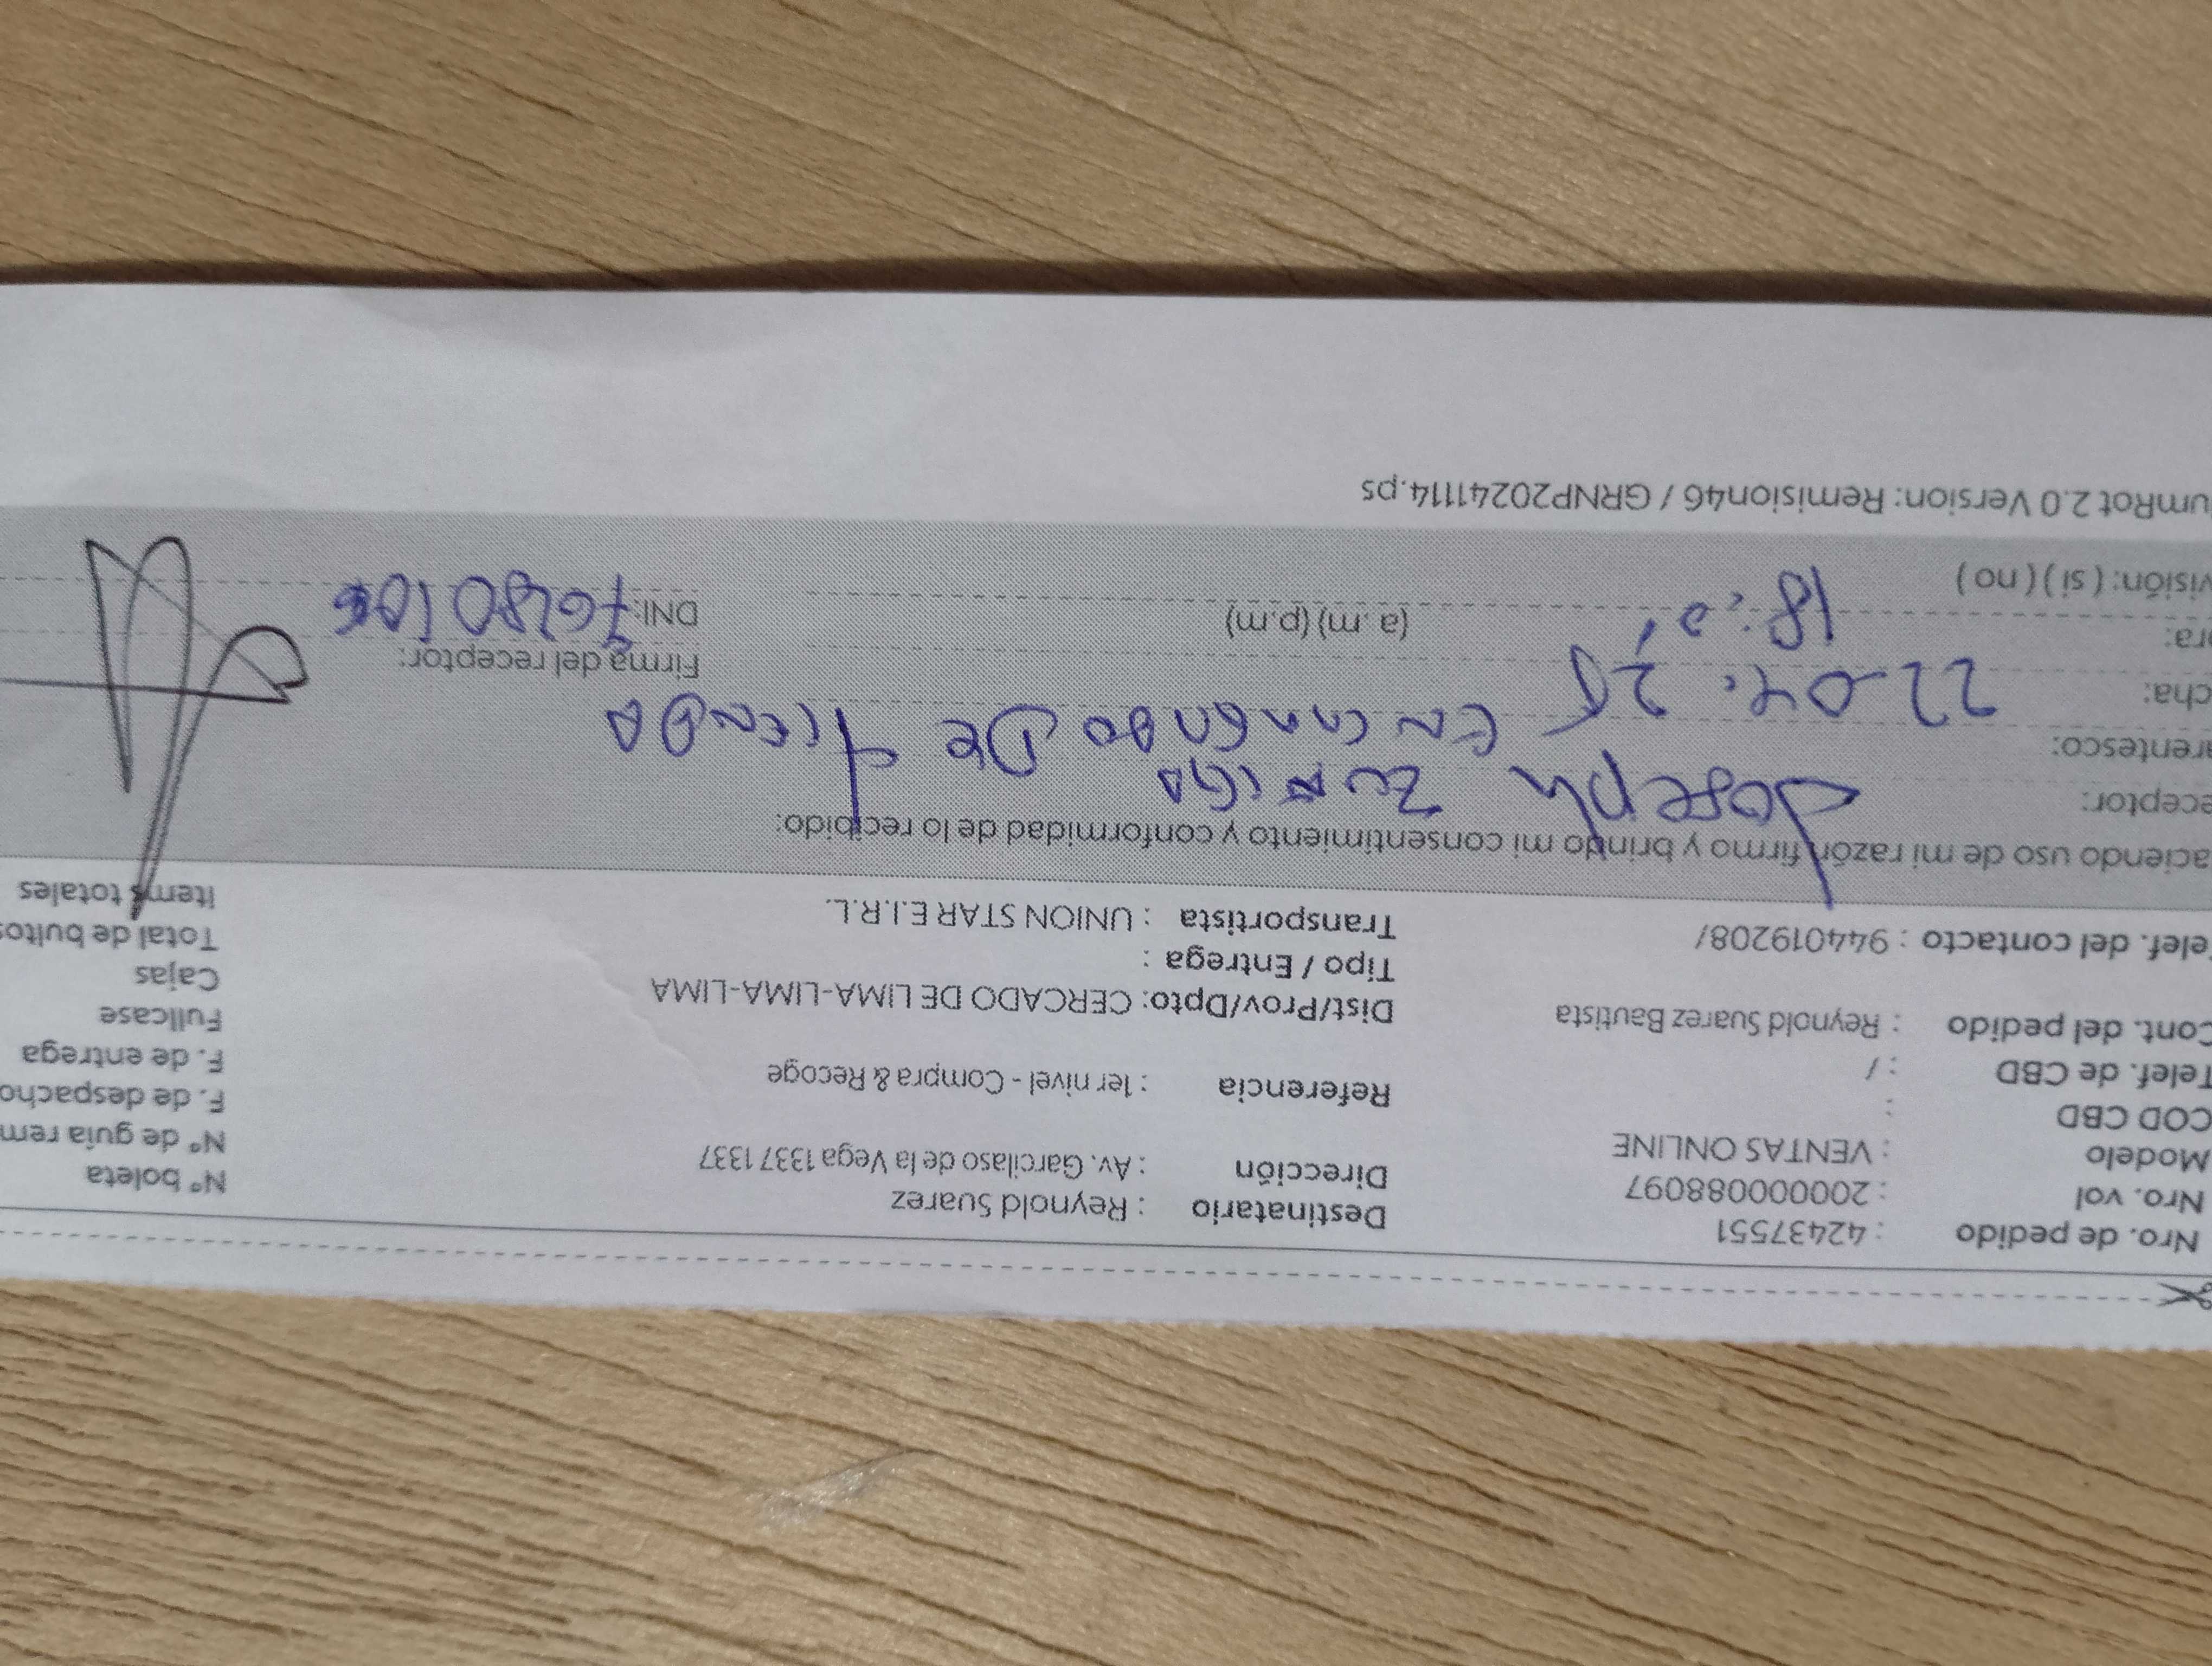 Nro. de pedido : 42437551
Nro. vol : 20000088097
Modelo : VENTAS ONLINE
COD CBD :
Telef. de CBD : /
Cont. del pedido : Reynold Suarez Bautista
Telef. del contacto : 944019208/
Destinatario : Reynold Suarez
Dirección : Av. Garcilaso de la Vega 1337 1337
Referencia : 1er nivel - Compra & Recoge
Dist/Prov/Dpto: CERCADO DE LIMA-LIMA-LIMA
Tipo / Entrega :
Transportista : UNION STAR E.I.R.L.
N° boleta
N° de guía rem
F. de despacho
F. de entrega
Fullcase
Cajas
Total de bultos
Items totales
aciendo uso de mi razón firmo y brindo mi consentimiento y conformidad de lo recibido:
eceptor: Joseph ZUÑIGA
arentesco: ENCARGADO DE TIENDA
cha: 22-04-25
ora: (a.m) (p.m)
visión: ( si ) ( no )
Firma del receptor:
DNI:
umRot 2.0 Version: Remision46 / GRNP20241114.ps